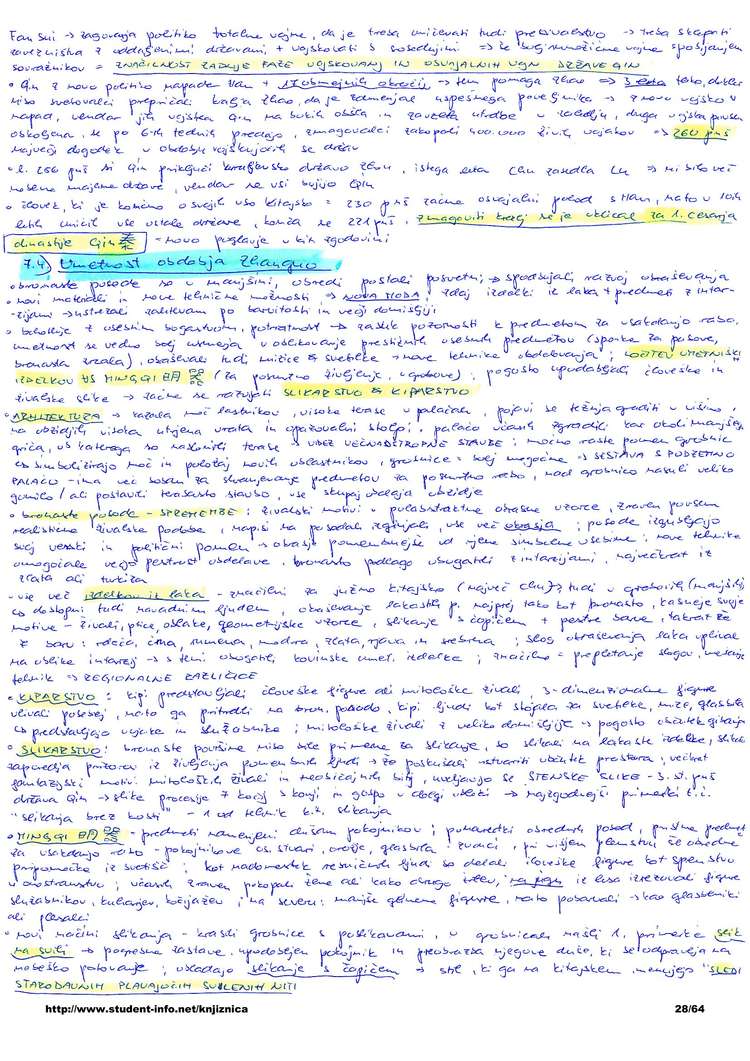 Fan Sui → zagovarja politiko totalne vojne, da je treba uničevati tudi prebivalstvo → treba sklepati
zavezništva z oddaljenimi državami, + vojskovati s sosednjimi →
sovražnikov = ZNAČILNOST ZADNJE FAZE VOJSKOVANJ IN OSVAJALNIH VOJN DRŽAVE QIN
• Qin z novo politiko napade Han + 17 obmejnih okrožij → tem pomaga Zhao → 3 leta tako, dokler
niso svetovalci prepričali kralja Zhao, da je zamenjal uspešnega poveljnika → z novo vojsko v
napad, vendar jih vojska Qin na bokih obšla in zavzela utrdbe v zaledju, druga vojska povsem
obkoljena, se po 6-ih tednih predajo, zmagovalci zakopali 400.000 živih vojakov → 260 pnš
največji dogodek v obdobju vojskujočih se držav
• l. 256 pnš si Qin priključi kraljevsko državo Zhou, istega leta Chu zasedla Lu → ni bilo več
nobene majhne države, vendar se vsi bojijo Qin
• človek, ki je končno osvojil vso Kitajsko = 230 pnš začne osvajalni pohod s Han, nato v 10ih
letih uničil vse ostale države, konča se 221 pnš, zmagoviti kralj se je oklical za 1. cesarja
dinastije Qin 秦 = novo poglavje v kit. zgodovini
7.4) Umetnost obdobja Zhanguo
• bronaste posode so v manjšini, obredi postali posvetni → spodbujali razvoj okraševanja
• novi materiali in nove tehnične možnosti → NOVA MODA: zdaj izdelki iz laka + predmeti z intar-
zijami → ustrezali zahtevam po barvitosti in večji domišljiji
• bahanje z osebnim bogastvom, potratnost → zasuk pozornosti k predmetom za vsakdanjo rabo,
umetnost se vedno bolj usmerja v oblikovanje prestižnih osebnih predmetov (sponke za pasove,
bronasta zrcala), okraševali tudi mizice & svetilke → nove tehnike obdelovanja; LOČITEV UMETNIŠKIH
IZDELKOV VS MINGQI 明器 (za posmrtno življenje, v grobove); pogosto upodabljali človeške in
živalske slike → začne se razvijati SLIKARSTVO & KIPARSTVO
• ARHITEKTURA → kazala moč lastnikov, visoke terase v palačah, pojavi se težnja graditi v višino,
na obzidjih visoka utrjena vrata in opazovalni stolpi, palačo včasih zgradili kar okoli manjšega
griča, ob katerega so naslonili terase → VIDEZ VEČNADSTROPNE STAVBE; močno raste pomen grobnic
→ simbolizirajo moč in položaj novih oblastnikov, grobnice = bolj mogočne → SESTAVA S PODZEMNO
PALAČO - ima več soban za shranjevanje predmetov za posmrtno rabo, nad grobnico nasuli veliko
gomilo / ali postavili terasasto stavbo, vse skupaj obdaja obzidje
• bronaste posode - SPREMEMBE: živalski motivi v polabstraktne okrasne vzorce, zraven povsem
realistične živalske podobe, napisi na posodah izginjali, vse več okrasja; posode izgubljajo
svoj verski in politični pomen → okrasje pomembnejše od njene simbolne vsebine; nove tehnike
omogočale večjo pestrost obdelave, bronasto podlago obogatili z intarzijami, največkrat iz
zlata ali turkiza
- vse več izdelkov iz laka - značilni za južno Kitajsko (največ Chu), tudi v grobovih (manjših)
→ dostopni tudi navadnim ljudem, okraševanje lakastih p. najprej tako kot bronasto, kasneje svoje
motive - živali, ptice, oblake, geometrijske vzorce, slikanje s čopičem + pestre barve, takrat že
7 barv: rdeča, črna, rumena, modra, zlata, rjava in srebrna; slog okraševanja laka vplival
na oblike intarzij → s temi obogatili kovinske umet. izdelke; značilno = prepletanje slogov, mešanje
tehnik → REGIONALNE RAZLIČICE
• KIPARSTVO: kipi predstavljali človeške figure ali mitološke živali, 3-dimenzionalne figure
ulivali posebej, nato ga pritrdili na bron. posodo, kipi ljudi kot stojala za svetilke, mize, glasbila
→ predstavljajo vojake in služabnike; mitološke živali z veliko domišljije → pogosto občutek gibanja
• SLIKARSTVO: bronaste površine niso bile primerne za slikanje, so slikali na lakaste izdelke, slike
zaporedja prizorov iz življenja pomembnih ljudi → že poskušali ustvariti občutek prostora; večkrat
fantazijski motivi mitoloških živali in neobičajnih bitij, uveljavijo se STENSKE SLIKE - 3. st. pnš
država Qin → slike procesije 7 kočij s konji in gospo v dolgi obleki → najzgodnejši primerki t.i.
"slikanja brez kosti" - 1 od tehnik kit. slikanja
• MINGQI 明器 - predmeti namenjeni dušam pokojnikov; posnetki obrednih posod, pristne predmete
za vsakdanjo rabo - pokojnikove os. stvari, orožje, glasbila, zvonci, pri višjem plemstvu še obredne
pripomočke iz svetišč; kot nadomestek resničnih ljudi so delali človeške figure kot spremstvo
v onostranstvu; včasih zraven pokopali žene ali kako drugo žrtev, na jugu iz lesa izrezovali figure
služabnikov, kuharjev, kočijažev; na severu: manjše glinene figure, nato pobarvali → kao glasbeniki
ali plesalci
• novi načini slikanja - krasili grobnice s poslikavami, v grobnicah našli 1. primerke slik
na svili → pogrebne zastave, upodobljen pokojnik in preobrazba njegove duše, ki se odpravlja na
nebeško potovanje; vladajo slikanje s čopičem → stil, ki ga na Kitajskem imenujejo "SLEDI
STARODAVNIH PLAVAJOČIH SVILENIH NITI
http://www.student-info.net/knjiznica
28/64